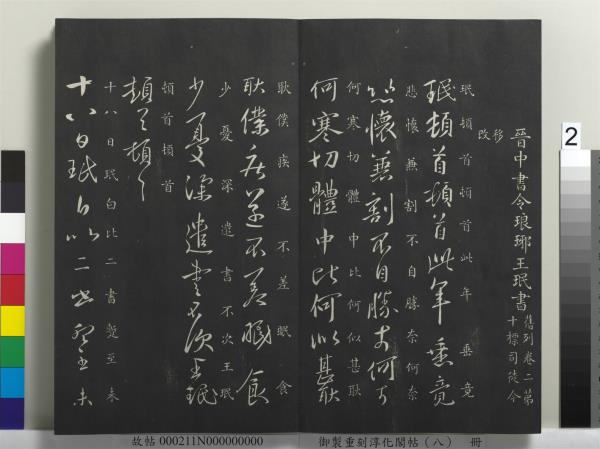 晉中書令琅琊王珉書
舊列卷二第
十標司徒今
移
改
珉頓首頓首此年垂竟
珉頓首頓首此年垂竟
悲懷兼割不自勝奈何奈
悲懷兼割不自勝奈何奈
何寒切體中比何似甚耿
何寒切體中比何似甚耿
耿僕疾遂不差眠食
耿僕疾遂不差眠食
少憂深遣書不次王珉
少憂深遣書不次王珉
頓首頓首
頓首頓首
十八日珉白比二書蹔至未
十八日珉白比二書蹔至未
2
故帖 000211N000000000 御製重刻淳化閣帖（八） 冊